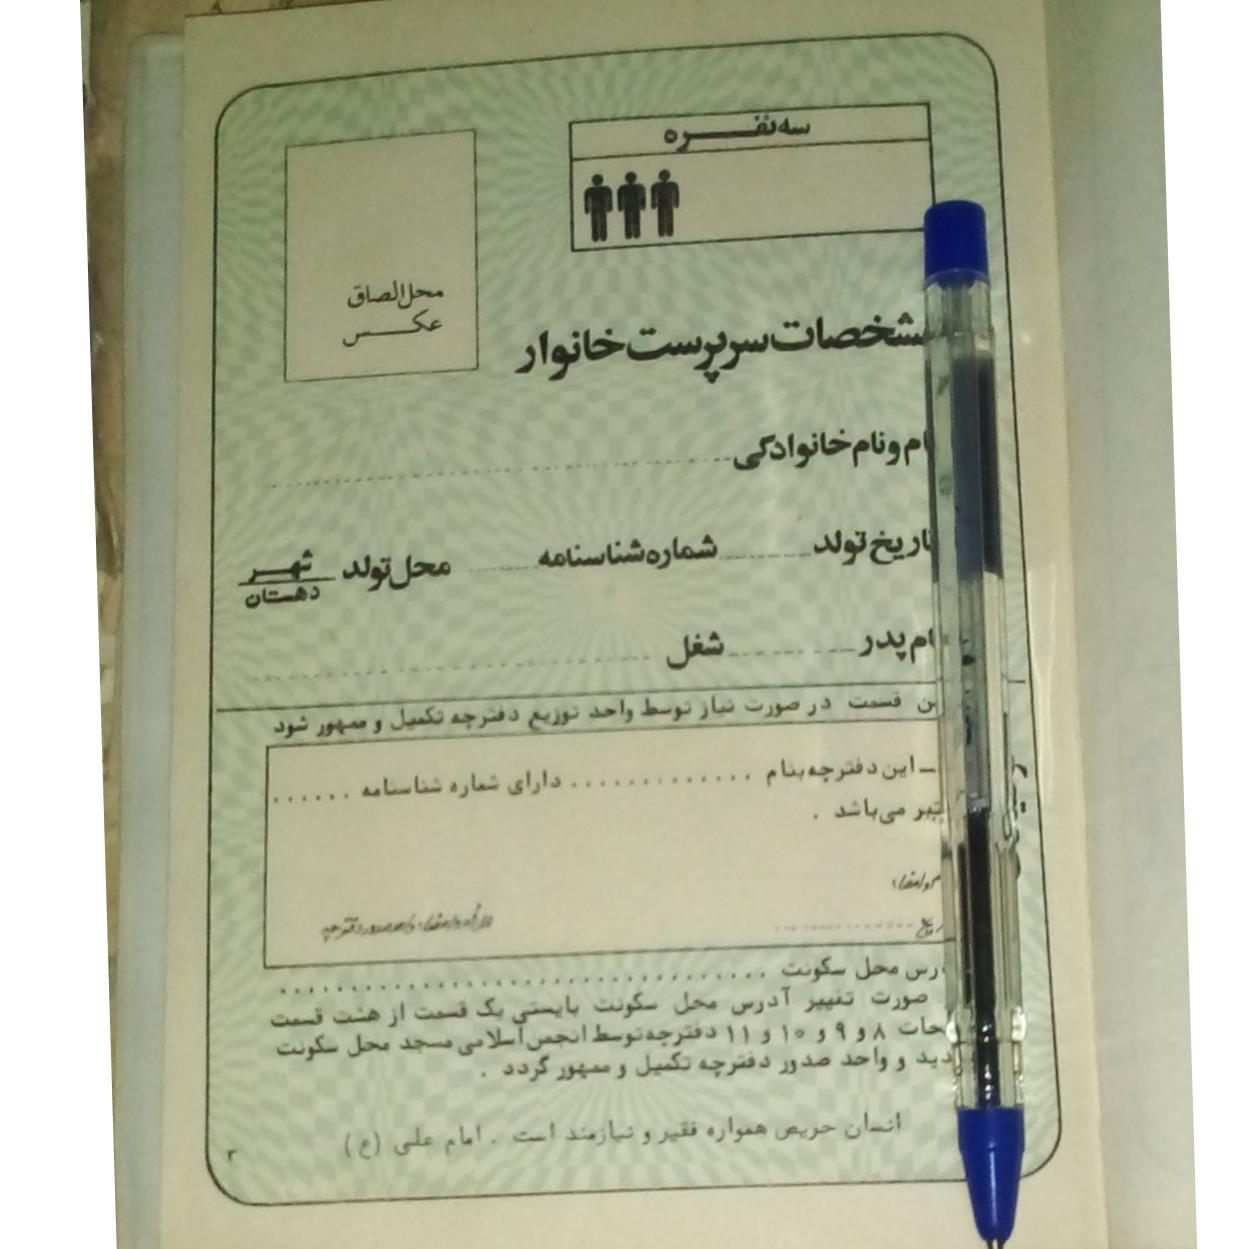 سه نفره
محل الصاق
عکس
مشخصات سرپرست خانوار
نام و نام خانوادگی
تاریخ تولد ........ شماره شناسنامه ........ محل تولد شهر
دهستان
نام پدر ........ شغل ........
قسمت در صورت نیاز توسط واحد توزیع دفترچه تکمیل و ممهور شود
ـ این دفترچه بنام ............. دارای شماره شناسنامه ......
می‌باشد .
محل سکونت ........
صورت تغییر آدرس محل سکونت بایستی یک قسمت از هشت قسمت
۸ و ۹ و ۱۰ و ۱۱ دفترچه توسط انجمن اسلامی مسجد محل سکونت
و واحد صدور دفترچه تکمیل و ممهور گردد .
انسان حریص همواره فقیر و نیازمند است . امام علی (ع)
۳